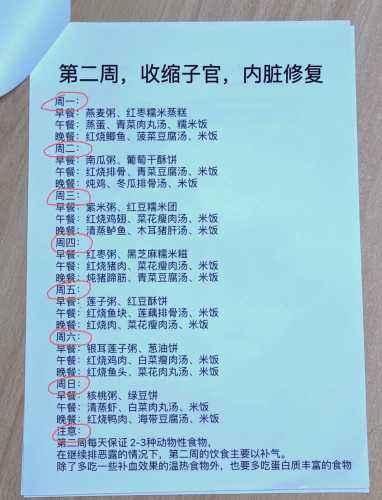 第二周，收缩子宫，内脏修复
周一：
早餐：燕麦粥、红枣糯米蒸糕
午餐：蒸蛋、青菜肉丸汤、糯米饭
晚餐：红烧鲫鱼、菠菜豆腐汤、米饭
周二：
早餐：南瓜粥、葡萄干酥饼
午餐：红烧排骨、青菜豆腐汤、米饭
晚餐：炖鸡、冬瓜排骨汤、米饭
周三：
早餐：紫米粥、红豆糯米团
午餐：红烧鸡翅、菜花瘦肉汤、米饭
晚餐：清蒸鲈鱼、木耳猪肝汤、米饭
周四：
早餐：红枣粥、黑芝麻糯米糍
午餐：红烧猪肉、菜花瘦肉汤、米饭
晚餐：炖猪蹄筋、青菜豆腐汤、米饭
周五：
早餐：莲子粥、红豆酥饼
午餐：红烧鱼块、莲藕排骨汤、米饭
晚餐：红烧肉、菜花瘦肉汤、米饭
周六：
早餐：银耳莲子粥、葱油饼
午餐：红烧鸡肉、白菜瘦肉汤、米饭
晚餐：红烧鱼头、菜花肉丸汤、米饭
周日：
早餐：核桃粥、绿豆饼
午餐：清蒸虾、白菜肉丸汤、米饭
晚餐：红烧鸭肉、海带豆腐汤、米饭
注意：
第二周每天保证 2-3种动物性食物，
在继续排恶露的情况下，第二周的饮食主要以补气。
除了多吃一些补血效果的温热食物外，也要多吃蛋白质丰富的食物